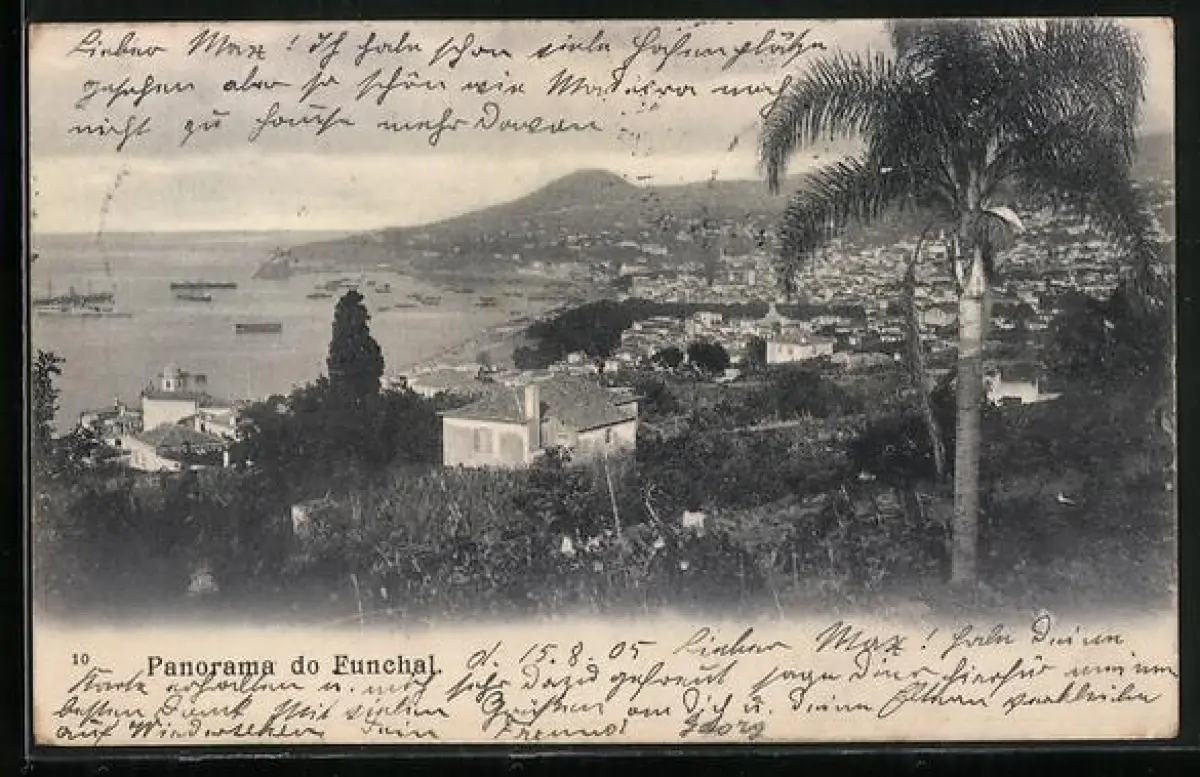 Lieber Max! Ich habe schon viele Hafenplätze
gesehen aber so schön wie Madeira noch
nicht zu Hause mehr davon
10 Panorama do Funchal.
d. 15.8.05 Lieber Max! habe Deine
Karte erhalten u. mich sehr dazu gefreut sage Dir hierfür meinen
besten Dank Mit vielen Grüßen an Dich u. Deine Eltern verbleibe
auf Wiedersehen Dein Freund Georg